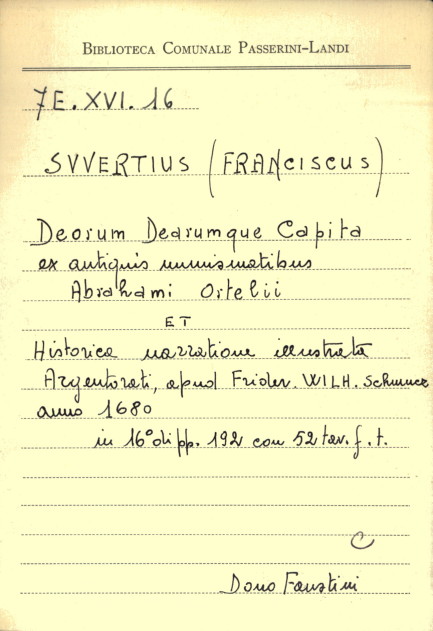 BIBLIOTECA COMUNALE PASSERINI-LANDI
7E.XVI.16
SVVERTIUS (FRANCISCUS)
Deorum Dearumque Capita
ex antiquis numismatibus
Abrahami Ortelii
ET
Historica narratione illustrata
Argentorati, apud Frider. WILH. Schmuck
anno 1680
in 16° di pp. 192 con 52 tav. f. t.
C
Dono Faustini